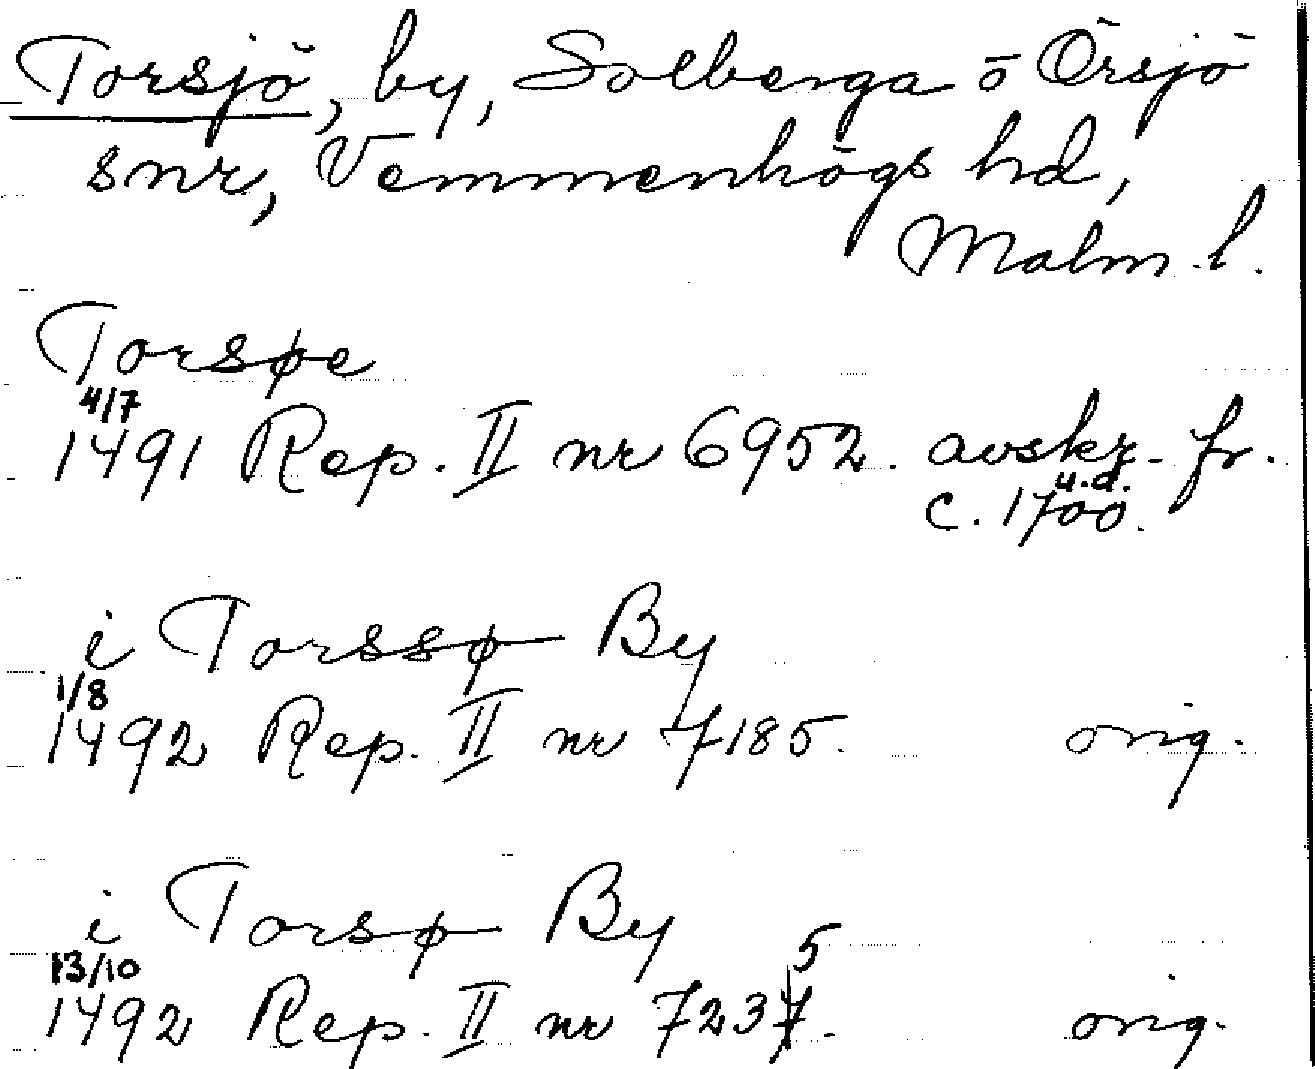 Torsjö, by, Solberga o Örsjö
snr, Vemmenhögs hd,
Malm. l.
Torsøe
4/7
1491 Rep. II nr 6952. avskr. fr.
u.d.
c. 1700.
i Torssø By
1/8
1492 Rep. II nr 7185. orig.
i Torsø By
13/10
5
1492 Rep. II nr 7237. orig.